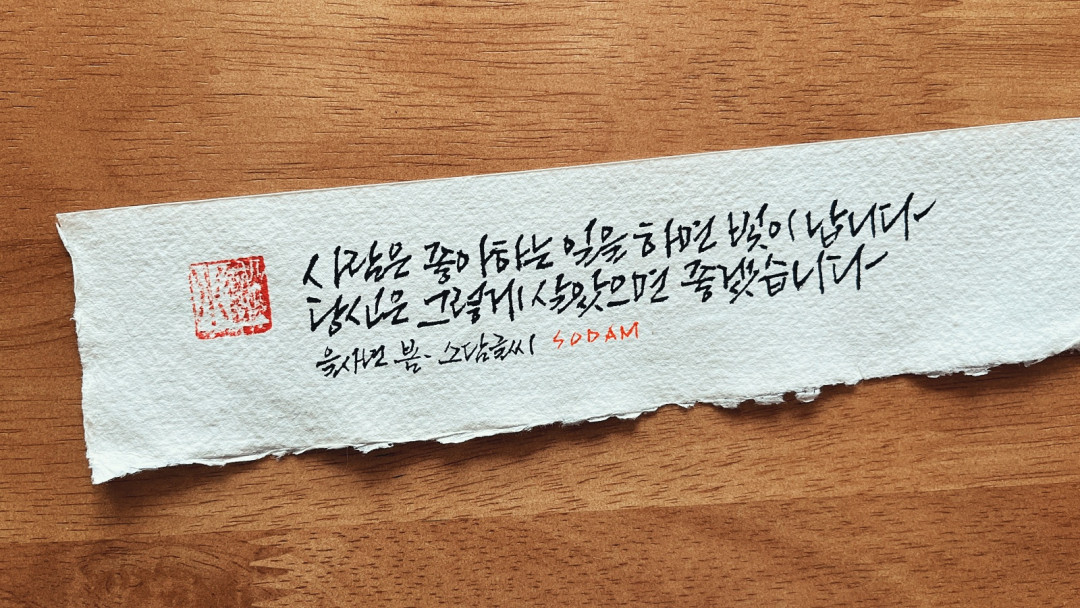 사람은 좋아하는 일을 하면 빛이 납니다
당신은 그렇게 살았으면 좋겠습니다
을사년 봄. 소담글씨 SODAM